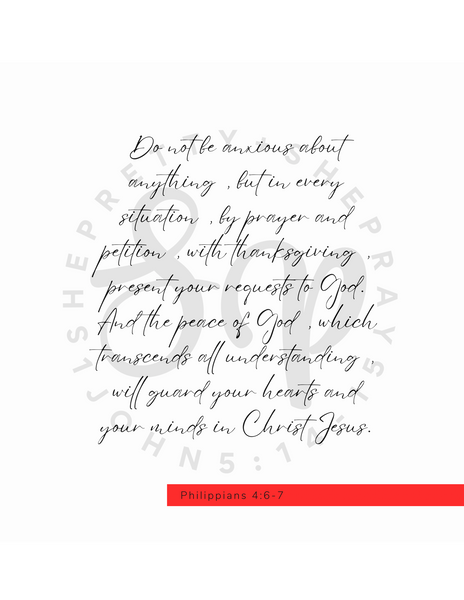 Do not be anxious about
anything , but in every
situation , by prayer and
petition , with thanksgiving ,
present your requests to God.
And the peace of God , which
transcends all understanding ,
will guard your hearts and
your minds in Christ Jesus.
Philippians 4:6-7